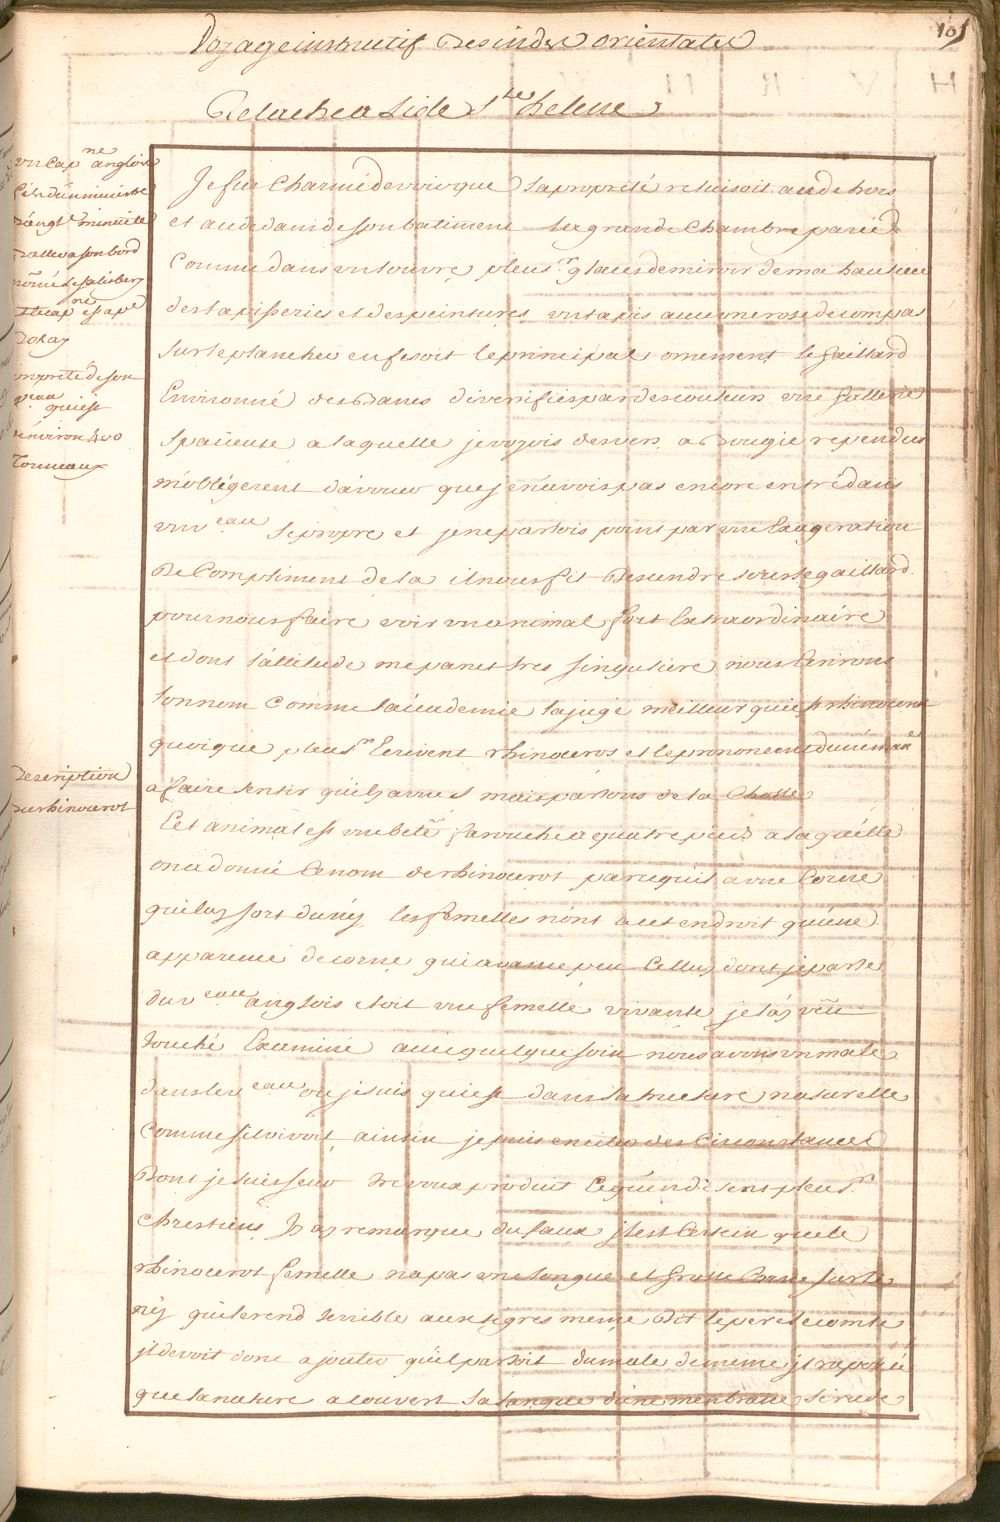 Voyage instructif Des indes orientales
101
Relache a Lisle Ste helene
un Capne anglois
D'angle
mennelle
D'aller a son bord
nomé le salisbery
proprete de son
veau qui est
d'environ 400
Tonneaux
Je fus Charmé de voir que la propreté reluisoit au dehors
et au dedans de son batiment sa grande Chambre parée
Comme dans un Louvre plusrs glaces de miroir de ma hauteur
des tapisseries et des peintures un tapis avec une rose de compas
sur le plancher en fesoit le principal ornement le Gaillard
Environné des Bancs diversifies par des couleurs une gallerie
spatieuse a laquelle je voyois des vers a Bougie rependus
m'obligerent d'avouer que je n'avois pas encore entré dans
un veau si propre et je ne parlois point par une Exageration
De Compliment de la il nous fit Descendre sous le gaillard
pour nous faire voir un animal fort Extraordinaire
et dont l'attitude me parut tres singuliere nous Ecrirons
son nom Comme l'accademie la jugé meilleur qui est rhinocerot
quoique plusrs Ecrivent rhinoceros et le prononcent de maere
a faire sentir qu'il y a une s mais parlons de la Chose
Description
du rhinocerot
Cet animal est une bete farouche a quatre pieds a laquelle
on a donné le nom de rhinocerot parcequ'il a une Corne
qui luy sort du néz les femelles n'ont a cet endroit qu'une
apparence de corne qui avance peu Celluy dont je parle
du veau anglois etoit une femelle vivante je l'ay vüe
touché Examiné avec quelque soin nous avons un male
dans le veau ou je suis qui est dans sa stucture naturelle
Comme s'il vivoit ainsin je puis en citer des Circonstances
Dont je suis seur Je vous produit Ce qu'en disent plusrs
Chrestiens J'ay remarque du faux il est Certain que le
rhinocerot femelle n'a pas une longue et grosse Corne sur le
néz qui le rend terrible aux tigres meme Dit le pere le comte
il devoit donc ajouter qu'il parloit du male de meme il raporte
que la nature a couvert sa langue d'une membrane si rude